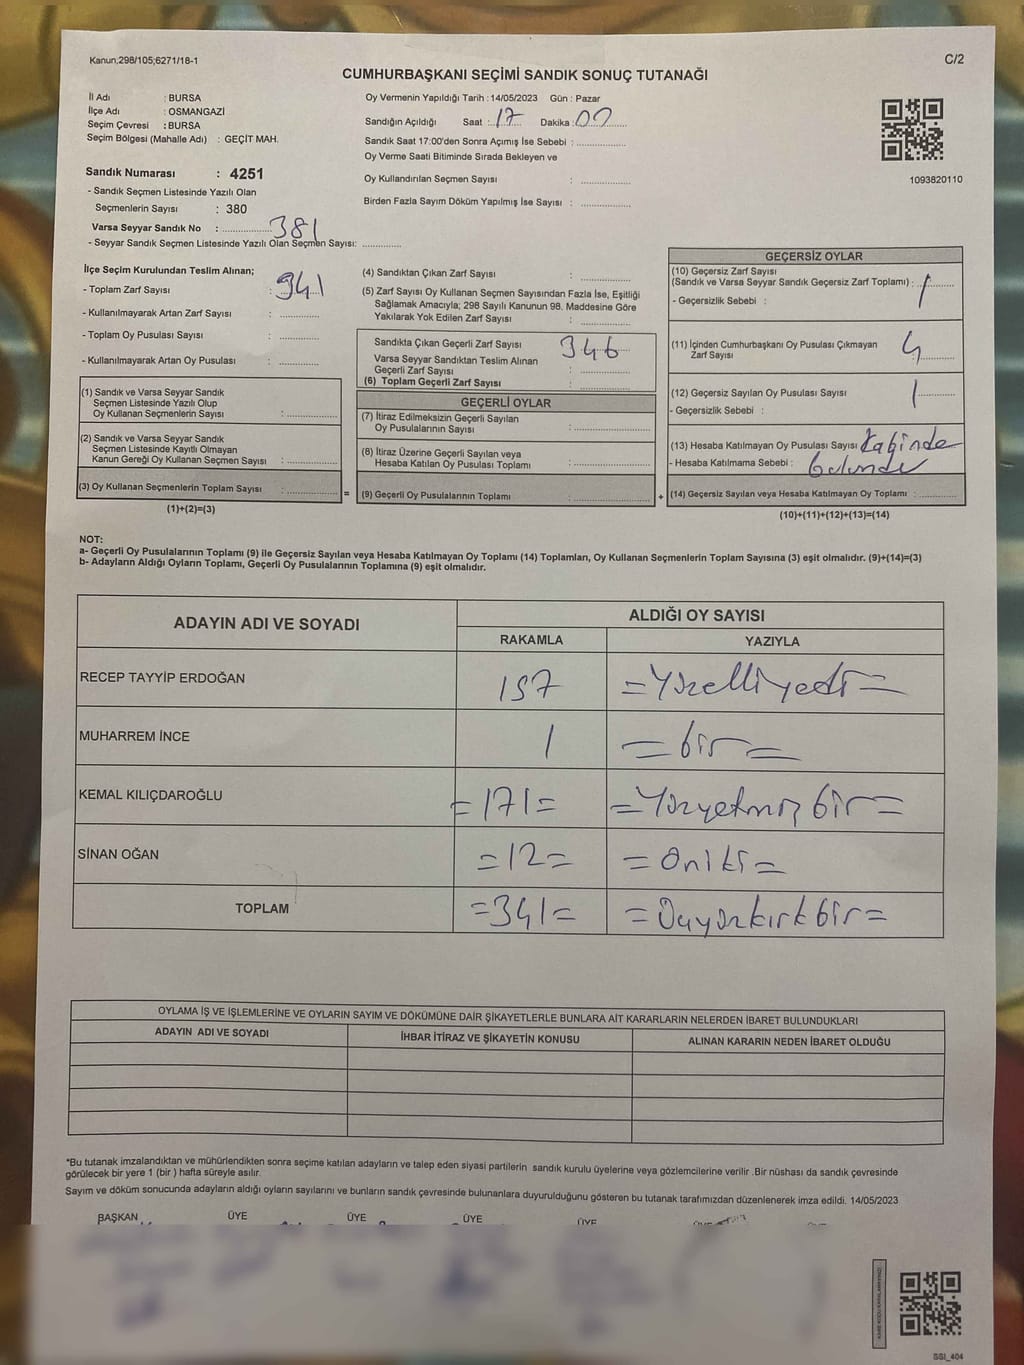 Kanun,298/105;6271/18-1
C/2
CUMHURBAŞKANI SEÇİMİ SANDIK SONUÇ TUTANAĞI
İl Adı : BURSA
İlçe Adı : OSMANGAZİ
Seçim Çevresi : BURSA
Seçim Bölgesi (Mahalle Adı) : GEÇİT MAH.
Sandık Numarası : 4251
- Sandık Seçmen Listesinde Yazılı Olan
Seçmenlerin Sayısı : 380
Varsa Seyyar Sandık No : 381
- Seyyar Sandık Seçmen Listesinde Yazılı Olan Seçmen Sayısı:
Oy Vermenin Yapıldığı Tarih : 14/05/2023 Gün : Pazar
Sandığın Açıldığı Saat : 17 Dakika : 00
Sandık Saat 17:00'den Sonra Açımış İse Sebebi :
Oy Verme Saati Bitiminde Sırada Bekleyen ve
Oy Kullandırılan Seçmen Sayısı :
Birden Fazla Sayım Döküm Yapılmış İse Sayısı :
1093820110
İlçe Seçim Kurulundan Teslim Alınan;
- Toplam Zarf Sayısı : 341
- Kullanılmayarak Artan Zarf Sayısı :
- Toplam Oy Pusulası Sayısı :
- Kullanılmayarak Artan Oy Pusulası :
(1) Sandık ve Varsa Seyyar Sandık
Seçmen Listesinde Yazılı Olup
Oy Kullanan Seçmenlerin Sayısı :
(2) Sandık ve Varsa Seyyar Sandık
Seçmen Listesinde Kayıtlı Olmayan
Kanun Gereği Oy Kullanan Seçmen Sayısı :
(3) Oy Kullanan Seçmenlerin Toplam Sayısı : =
(1)+(2)=(3)
(4) Sandıktan Çıkan Zarf Sayısı :
(5) Zarf Sayısı Oy Kullanan Seçmen Sayısından Fazla İse, Eşitliği
Sağlamak Amacıyla; 298 Sayılı Kanunun 98. Maddesine Göre
Yakılarak Yok Edilen Zarf Sayısı :
Sandıkta Çıkan Geçerli Zarf Sayısı 346
Varsa Seyyar Sandıktan Teslim Alınan
Geçerli Zarf Sayısı :
(6) Toplam Geçerli Zarf Sayısı :
GEÇERLİ OYLAR
(7) İtiraz Edilmeksizin Geçerli Sayılan
Oy Pusulalarının Sayısı :
(8) İtiraz Üzerine Geçerli Sayılan veya
Hesaba Katılan Oy Pusulası Toplamı :
(9) Geçerli Oy Pusulalarının Toplamı : +
GEÇERSİZ OYLAR
(10) Geçersiz Zarf Sayısı
(Sandık ve Varsa Seyyar Sandık Geçersiz Zarf Toplamı) : 1
- Geçersizlik Sebebi :
(11) İçinden Cumhurbaşkanı Oy Pusulası Çıkmayan
Zarf Sayısı 4
(12) Geçersiz Sayılan Oy Pusulası Sayısı 1
- Geçersizlik Sebebi :
(13) Hesaba Katılmayan Oy Pusulası Sayısı Kabinde
- Hesaba Katılmama Sebebi :
(14) Geçersiz Sayılan veya Hesaba Katılmayan Oy Toplamı :
(10)+(11)+(12)+(13)=(14)
NOT:
a- Geçerli Oy Pusulalarının Toplamı (9) ile Geçersiz Sayılan veya Hesaba Katılmayan Oy Toplamı (14) Toplamları, Oy Kullanan Seçmenlerin Toplam Sayısına (3) eşit olmalıdır. (9)+(14)=(3)
b- Adayların Aldığı Oyların Toplamı, Geçerli Oy Pusulalarının Toplamına (9) eşit olmalıdır.
ADAYIN ADI VE SOYADI
ALDIĞI OY SAYISI
RAKAMLA YAZIYLA
RECEP TAYYİP ERDOĞAN 157 =Yüzelliyedi=
MUHARREM İNCE 1 =bir=
KEMAL KILIÇDAROĞLU =171= =Yüzyetmiş bir=
SİNAN OĞAN =12= =Oniki=
TOPLAM =341= =Üçyüzkırkbir=
OYLAMA İŞ VE İŞLEMLERİNE VE OYLARIN SAYIM VE DÖKÜMÜNE DAİR ŞİKAYETLERLE BUNLARA AİT KARARLARIN NELERDEN İBARET BULUNDUKLARI
ADAYIN ADI VE SOYADI İHBAR İTİRAZ VE ŞİKAYETİN KONUSU ALINAN KARARIN NEDEN İBARET OLDUĞU
*Bu tutanak imzalandıktan ve mühürlendikten sonra seçime katılan adayların ve talep eden siyasi partilerin sandık kurulu üyelerine veya gözlemcilerine verilir .Bir nüshası da sandık çevresinde
görülecek bir yere 1 (bir ) hafta süreyle asılır.
Sayım ve döküm sonucunda adayların aldığı oyların sayılarını ve bunların sandık çevresinde bulunanlara duyurulduğunu gösteren bu tutanak tarafımızdan düzenlenerek imza edildi. 14/05/2023
BAŞKAN ÜYE ÜYE ÜYE ÜYE
SSI_404